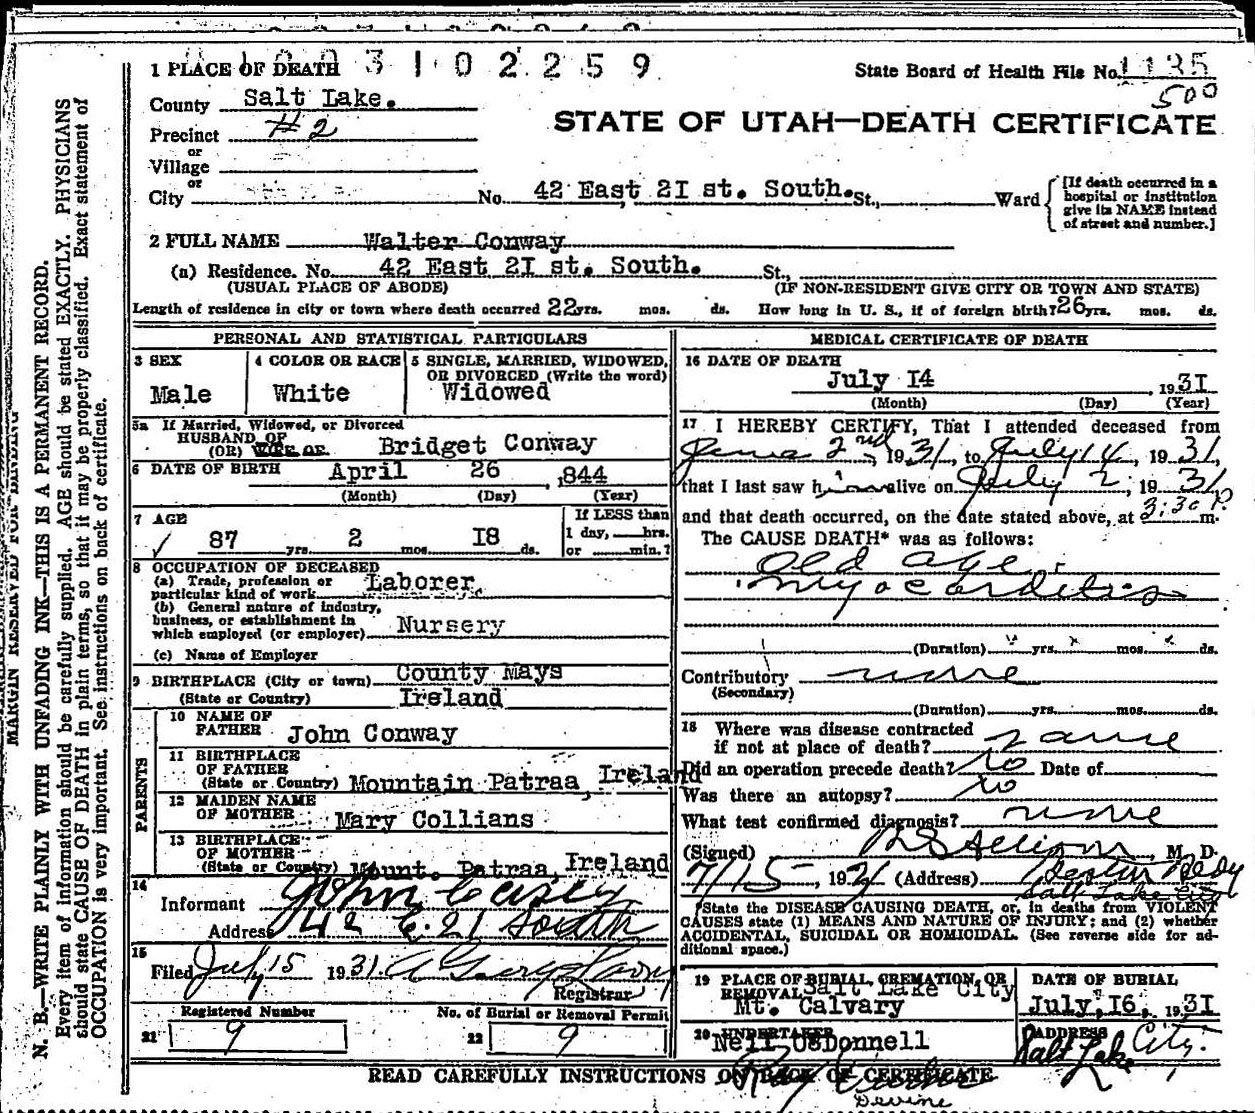 1 PLACE OF DEATH 3 1 0 2 2 5 9
State Board of Health File No. 1135
500
County Salt Lake.
STATE OF UTAH—DEATH CERTIFICATE
Precinct #2
or
Village
or
City No. 42 East 2I st. South. St., Ward
[If death occurred in a
hospital or institution
give its NAME instead
of street and number.]
2 FULL NAME Walter Conway
(a) Residence. No. 42 East 2I st. South. St.,
(USUAL PLACE OF ABODE) (IF NON-RESIDENT GIVE CITY OR TOWN AND STATE)
Length of residence in city or town where death occurred 22 yrs. mos. ds. How long in U. S., if of foreign birth? 26 yrs. mos. ds.
PERSONAL AND STATISTICAL PARTICULARS
3 SEX
Male
4 COLOR OR RACE
White
5 SINGLE, MARRIED, WIDOWED,
OR DIVORCED (Write the word)
Widowed
5a If Married, Widowed, or Divorced
HUSBAND OF
(OR) WIFE OF Bridget Conway
6 DATE OF BIRTH April 26 , 844
(Month) (Day) (Year)
7 AGE
87 yrs. 2 mos. I8 ds.
If LESS than
1 day, hrs.
or min.?
8 OCCUPATION OF DECEASED
(a) Trade, profession or
particular kind of work Laborer
(b) General nature of industry,
business, or establishment in
which employed (or employer) Nursery
(c) Name of Employer
9 BIRTHPLACE (City or town) County Mays
(State or Country) Ireland
PARENTS
10 NAME OF
FATHER John Conway
11 BIRTHPLACE
OF FATHER
(State or Country) Mountain Patraa, Ireland
12 MAIDEN NAME
OF MOTHER Mary Collians
13 BIRTHPLACE
OF MOTHER
(State or Country) Mount. Patraa, Ireland
14
Informant John Casey
Address 42 E. 21 South
15
Filed July 15 1931
Registrar
Registered Number
21 9
No. of Burial or Removal Permit
22 9
MEDICAL CERTIFICATE OF DEATH
16 DATE OF DEATH
July I4 , 1931
(Month) (Day) (Year)
17 I HEREBY CERTIFY, That I attended deceased from
June 2nd, 1931, to July 14, 1931,
that I last saw him alive on July 2, 1931,
and that death occurred, on the date stated above, at 3:30 P. m.
The CAUSE DEATH* was as follows:
Old age,
myocarditis
(Duration) yrs. mos. ds.
Contributory none
(Secondary)
(Duration) yrs. mos. ds.
18 Where was disease contracted
if not at place of death? same
Did an operation precede death? No Date of
Was there an autopsy? No
What test confirmed diagnosis? none
(Signed) M. D.
7/15, 1931 (Address)
Salt Lake City
*State the DISEASE CAUSING DEATH, or, in deaths from VIOLENT
CAUSES state (1) MEANS AND NATURE OF INJURY; and (2) whether
ACCIDENTAL, SUICIDAL OR HOMICIDAL. (See reverse side for ad-
ditional space.)
19 PLACE OF BURIAL, CREMATION, OR
REMOVAL Salt Lake City
Mt. Calvary
DATE OF BURIAL
July, 16, 1931
20 UNDERTAKER
Neil O'Donnell
ADDRESS
Salt Lake City.
READ CAREFULLY INSTRUCTIONS ON BACK OF CERTIFICATE
Devine
MARGIN RESERVED FOR BINDING
N. B.—WRITE PLAINLY WITH UNFADING INK—THIS IS A PERMANENT RECORD.
Every item of information should be carefully supplied. AGE should be stated EXACTLY. PHYSICIANS
should state CAUSE OF DEATH in plain terms, so that it may be properly classified. Exact statement of
OCCUPATION is very important. See instructions on back of certificate.